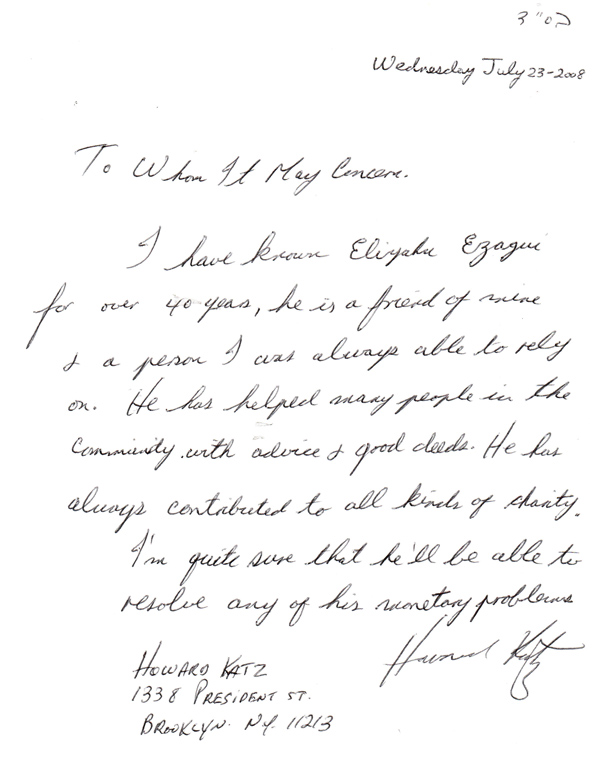 בס"ד
Wednesday July 23-2008
To Whom It May Concern.
I have known Eliyahu Ezagui
for over 40 years, he is a friend of mine
& a person I was always able to rely
on. He has helped many people in the
Community with advice & good deeds. He has
always contributed to all kinds of charity.
I'm quite sure that he'll be able to
resolve any of his monetary problems
Howard Katz
HOWARD KATZ
1338 PRESIDENT ST.
BROOKLYN. N.Y. 11213